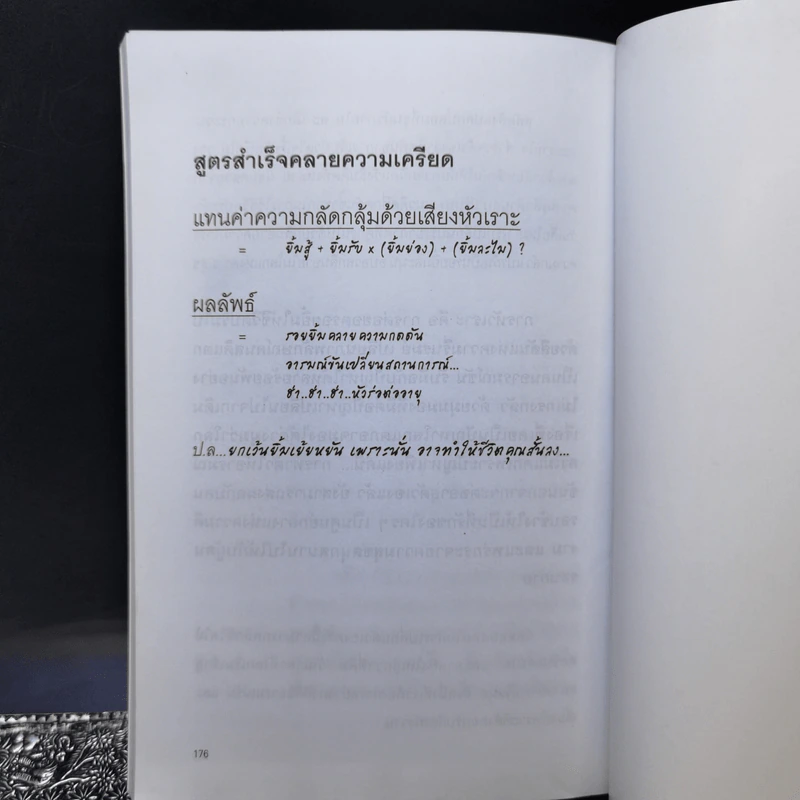 สูตรสำเร็จคลายความเครียด
แทนค่าความกลัดกลุ้มด้วยเสียงหัวเราะ
= ยิ้มสู้ + ยิ้มรับ x (ยิ้มย่อง) + (ยิ้มละไม) ?
ผลลัพธ์
= รอยยิ้มคลายความกดดัน
อารมณ์ขันเปลี่ยนสถานการณ์...
ฮ่า..ฮ่า..ฮ่า..หัวร่อต่ออายุ
ป.ล...ยกเว้นยิ้มเย้ยหยัน เพราะนั่น อาจทำให้ชีวิตคุณสั้นลง...
176